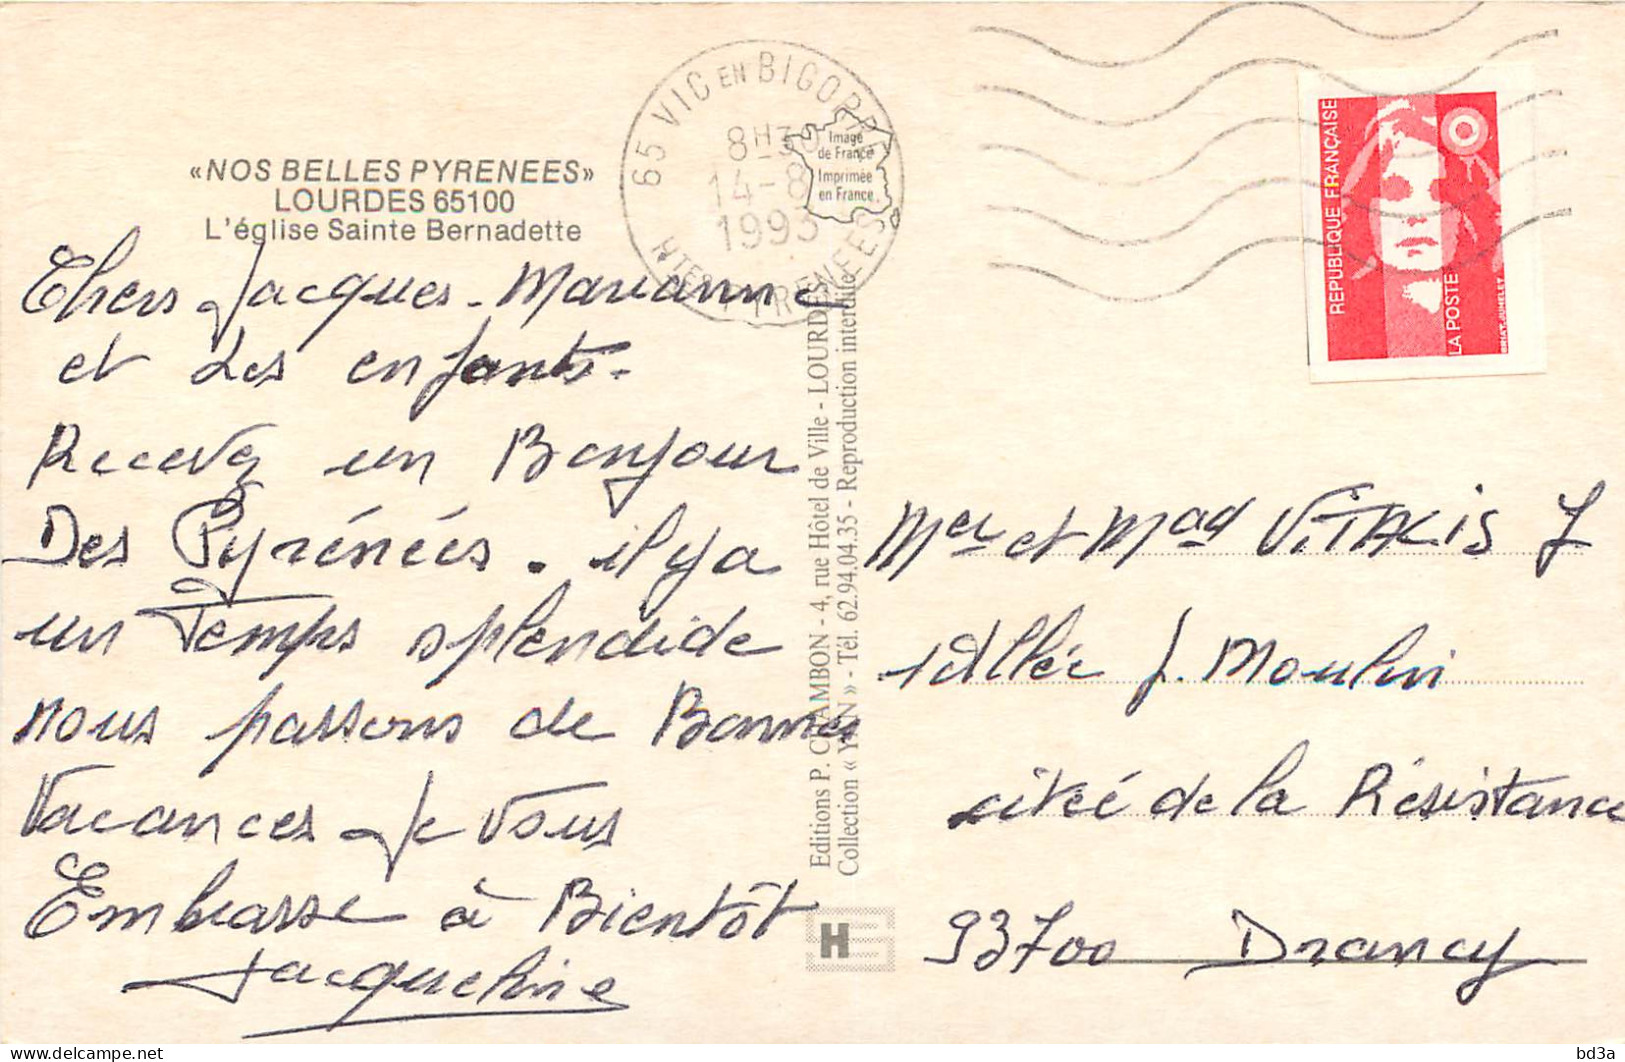 «NOS BELLES PYRENEES»
LOURDES 65100
L'église Sainte Bernadette
65 VIC EN BIGORRE
8H30
14-8
1993
HTES PYRENEES
Image
de France
Imprimée
en France
REPUBLIQUE FRANÇAISE
LA POSTE
BRIAT-JUMELET
Chers Jacques - Marianne
et Les enfants.
Recevez un Bonjour
Des Pyrénées. il y a
un Temps splendide
nous passons de Bonnes
Vacances Je vous
Embrasse à Bientôt
Jacqueline
Editions P. CHAMBON - 4, rue Hôtel de Ville - LOURDES
Collection « YAN » - Tél. 62.94.04.35 - Reproduction interdite
H
Mer et Mad VITALIS J
1 Allée J. Moulin
citeé de la Résistance
93700 Drancy
bd3a